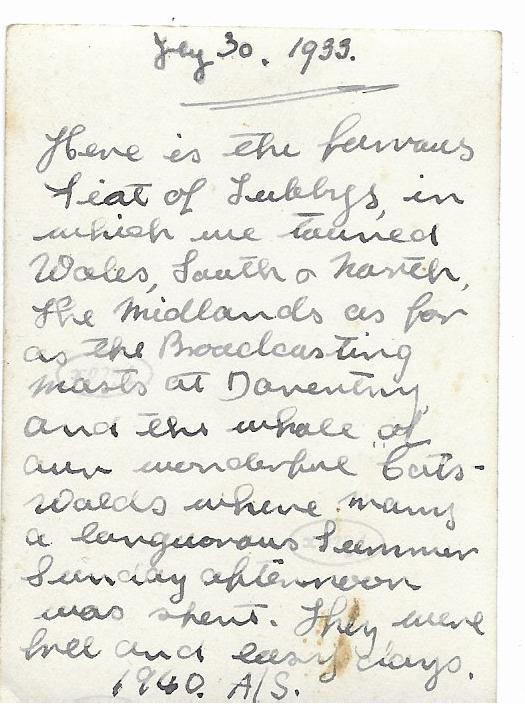 July 30. 1933.
Here is the famous
Fiat of Tubbys, in
which we toured
Wales, South & North,
the Midlands as far
as the Broadcasting
masts at Daventry,
and the whole of
our wonderful Cots-
wolds where many
a languorous Summer
Sunday afternoon
was spent. They were
free and easy days.
1940. A/S.